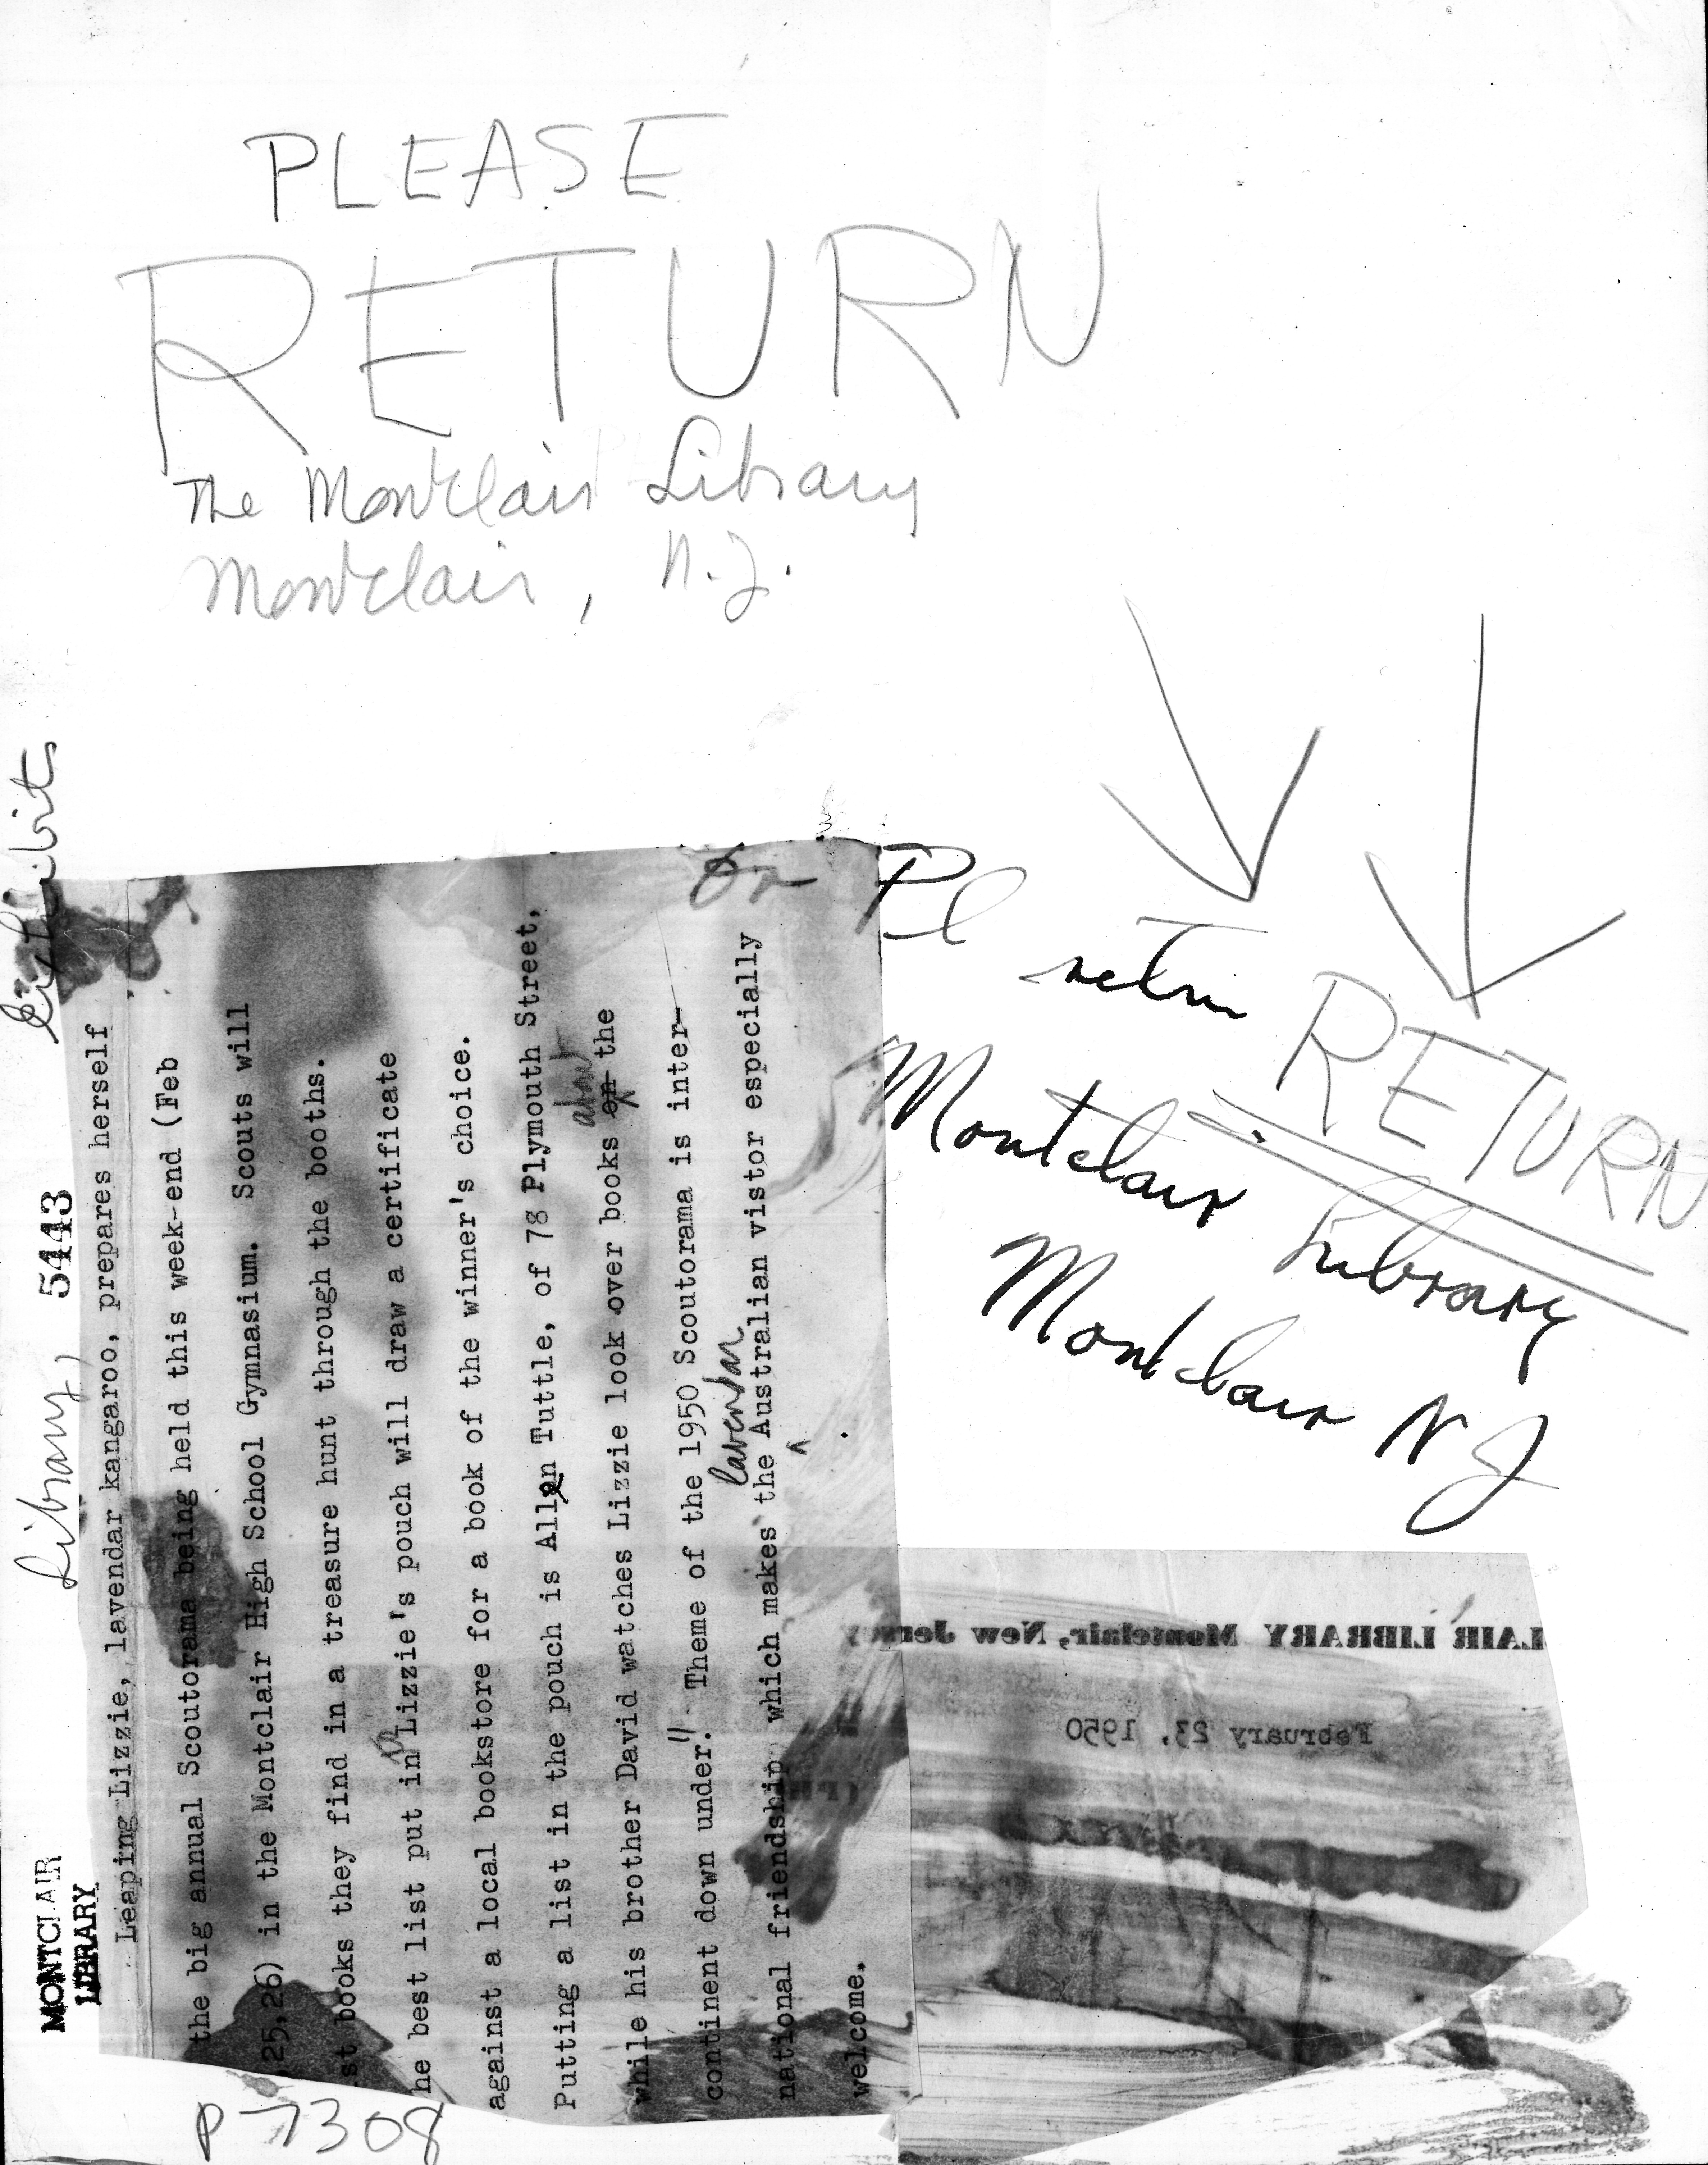 PLEASE
RETURN
The Montclair Library
Montclair, N.J.
Pl
return RETURN
Montclair Library
Montclair NJ
Exhibits
Library, 5443
MONTCLAIR
LIBRARY
Leaping Lizzie, lavendar kangaroo, prepares herself
the big annual Scoutorama being held this week-end (Feb
25,26) in the Montclair High School Gymnasium. Scouts will
st books they find in a treasure hunt through the booths.
he best list put in Lizzie's pouch will draw a certificate
against a local bookstore for a book of the winner's choice.
Putting a list in the pouch is Allen Tuttle, of 78 Plymouth Street,
about
while his brother David watches Lizzie look over books on the
continent down under." Theme of the 1950 Scoutorama is inter-
lavendar
national friendship which makes the Australian vistor especially
welcome.
LAIR LIBRARY Montclair, New Jersey
February 23, 1950
P-7308